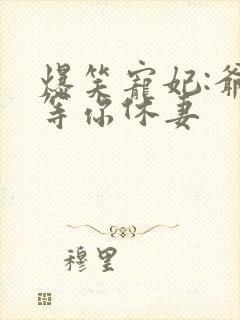 爆笑寵妃:爺
等你休妻
穆里